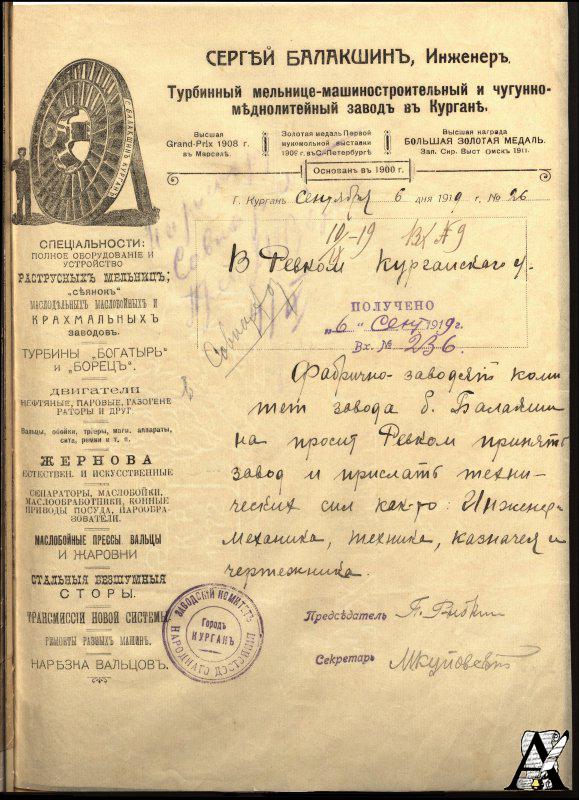 СЕРГѢЙ БАЛАКШИНЪ, Инженеръ.
Турбинный мельнице-машиностроительный и чугунно-
мѣднолитейный заводъ въ Курганѣ.
Высшая
Grand-Prix 1908 г.
въ Марселѣ.
Золотая медаль Первой
мукомольной выставки
1909 г. въ С.-Петербургѣ
Высшая награда
БОЛЬШАЯ ЗОЛОТАЯ МЕДАЛЬ.
Зап. Сир. Выст Омскъ 1911.
Основанъ въ 1900 г.
С. БАЛАКШИНЪ КУРГАНЪ
Г. Курганъ Сентября 6 дня 1919 г. № 26
10-19
В Ревком Курганского у-
ПОЛУЧЕНО
„6" сент 1919 г.
Вх. № 236
Фабрично-заводскт коми
тет завода б. Балакши
на просит Ревком принять
завод и прислать техни-
ческих сил как-то: Инженер-
Механика, техника, казначея и
чертежника.
Предсѣдатель
Секретарь
ЗАВОДСКІЙ КОМИТЕТЪ
НАРОДНАГО ДОСТОЯНІЯ
Городъ
КУРГАНЪ
СПЕЦІАЛЬНОСТИ:
ПОЛНОЕ ОБОРУДОВАНІЕ И
УСТРОЙСТВО
РАСТРУСНЫХЪ МЕЛЬНИЦЪ;
„СѢЯНОКЪ"
МАСЛОДѢЛЬНЫХЪ МАСЛОБОЙНЫХЪ И
КРАХМАЛЬНЫХЪ
ЗАВОДОВЪ.
ТУРБИНЫ „БОГАТЫРЬ"
И „БОРЕЦЪ".
ДВИГАТЕЛИ
НЕФТЯНЫЕ, ПАРОВЫЕ, ГАЗОГЕНЕ
РАТОРЫ И ДРУГ.
Вальцы, обойки, тріеры, магн. аппараты,
сита, ремни и т. п.
ЖЕРНОВА
ЕСТЕСТВЕН. И ИСКУССТВЕННЫЕ
СЕПАРАТОРЫ, МАСЛОБОЙКИ,
МАСЛООБРАБОТНИКИ, КОННЫЕ
ПРИВОДЫ ПОСУДА, ПАРООБРА-
ЗОВАТЕЛИ.
МАСЛОБОЙНЫЕ ПРЕССЫ. ВАЛЬЦЫ
И ЖАРОВНИ
СТАЛЬНЫЯ БЕЗШУМНЫЯ
СТОРЫ.
ТРАНСМИССІИ НОВОЙ СИСТЕМЫ
РЕМОНТЫ РАЗНЫХЪ МАШИНЪ.
НАРѢЗКА ВАЛЬЦОВЪ.